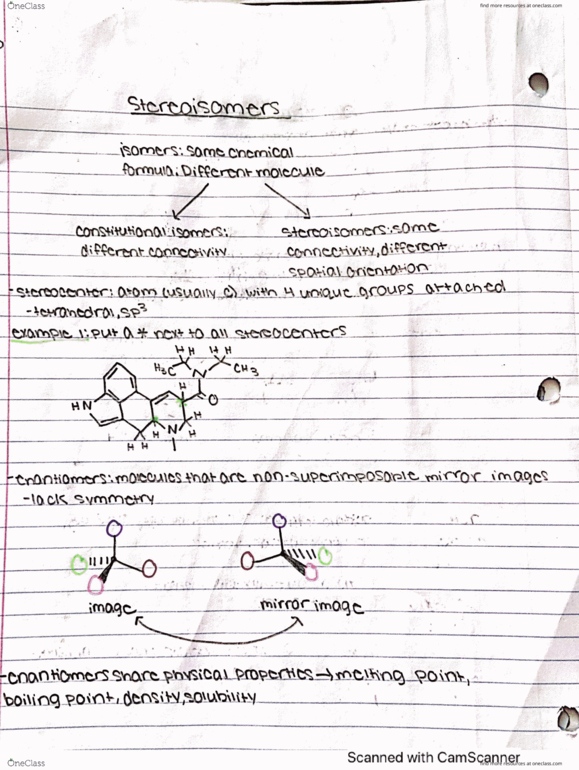 OneClass
find more resources at oneclass.com
Stereoisomers
isomers: same chemical
formula. Different molecule
constitutional isomers:
different connectivity
stereoisomers: same
connectivity, different
spatial orientation
-stereocenter: atom (usually C) with 4 unique groups attached
-tetrahedral, sp³
example 1: put a * next to all stereocenters
H H H H
H₃C N CH₃
H O
HN H
H N H
H H
-enantiomers: molecules that are non-superimposable mirror images
-lack symmetry
image
mirror image
-enantiomers share physical properties → melting point,
boiling point, density, solubility
Scanned with CamScanner
OneClass
find more resources at oneclass.com